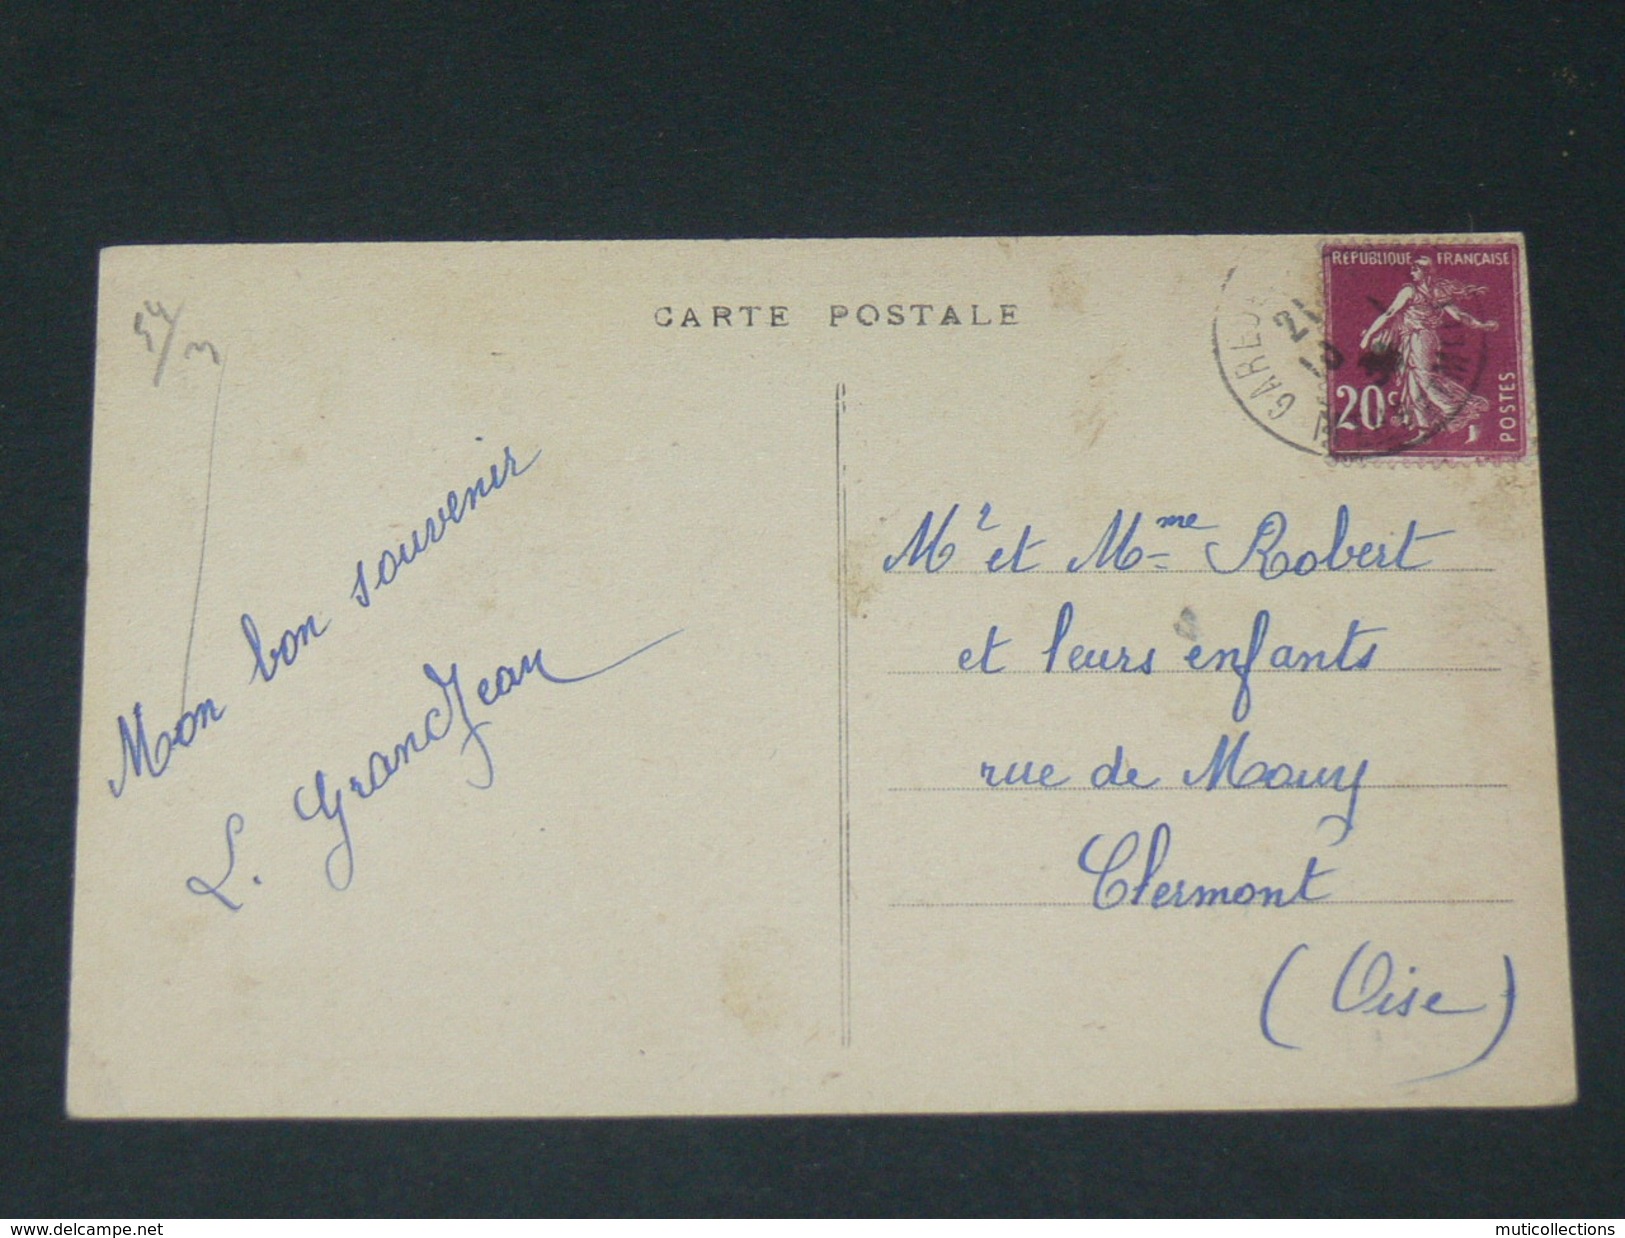 CARTE POSTALE
RÉPUBLIQUE FRANÇAISE
20c
POSTES
54/
Mon bon souvenir
L. GrandJean
Mr et Mme Robert
et leurs enfants
rue de Mouy
Clermont
(Oise)
www.delcampe.net
muticollections